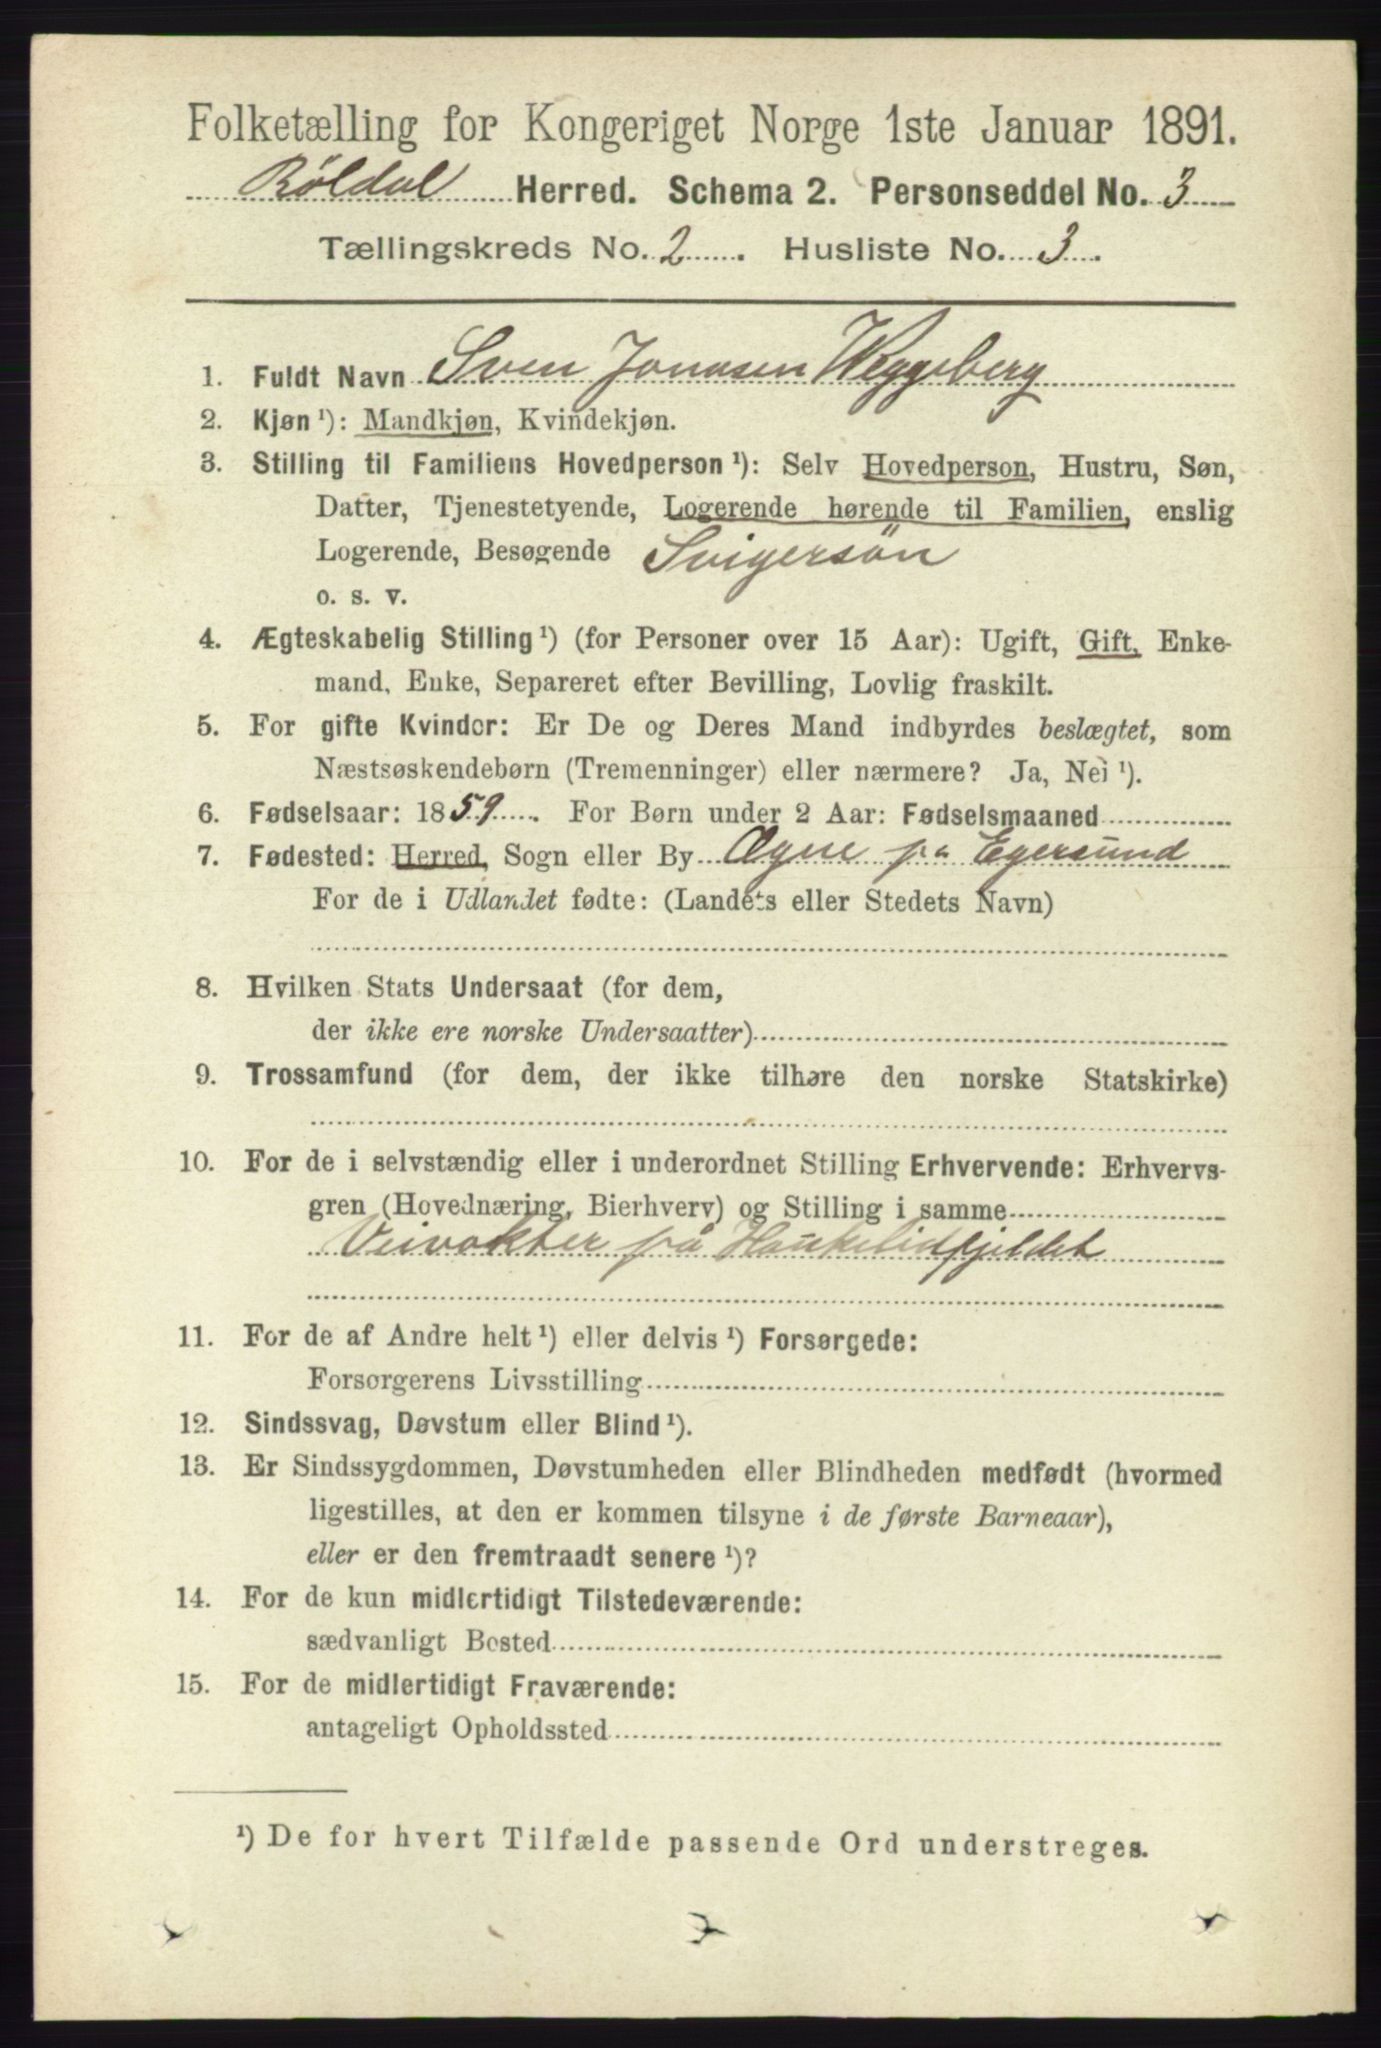 Folketælling for Kongeriget Norge 1ste Januar 1891.
Røldal Herred. Schema 2. Personseddel No. 3
Tællingskreds No. 2. Husliste No. 3.
1. Fuldt Navn Sven Jonasen Weggeberg
2. Kjøn ¹): Mandkjøn, Kvindekjøn.
3. Stilling til Familiens Hovedperson ¹): Selv Hovedperson, Hustru, Søn,
Datter, Tjenestetyende, Logerende hørende til Familien, enslig
Logerende, Besøgende Svigersön
o. s. v.
4. Ægteskabelig Stilling ¹) (for Personer over 15 Aar): Ugift, Gift, Enke-
mand, Enke, Separeret efter Bevilling, Lovlig fraskilt.
5. For gifte Kvinder: Er De og Deres Mand indbyrdes beslægtet, som
Næstsøskendebørn (Tremenninger) eller nærmere? Ja, Nei ¹).
6. Fødselsaar: 1859. For Børn under 2 Aar: Fødselsmaaned
7. Fødested: Herred, Sogn eller By Ogne pr Egersund
For de i Udlandet fødte: (Landets eller Stedets Navn)
8. Hvilken Stats Undersaat (for dem,
der ikke ere norske Undersaatter)
9. Trossamfund (for dem, der ikke tilhøre den norske Statskirke)
10. For de i selvstændig eller i underordnet Stilling Erhvervende: Erhvervs-
gren (Hovednæring, Bierhverv) og Stilling i samme
Veivokter på Haukelidfjeldet
11. For de af Andre helt ¹) eller delvis ¹) Forsørgede:
Forsørgerens Livsstilling
12. Sindssvag, Døvstum eller Blind ¹).
13. Er Sindssygdommen, Døvstumheden eller Blindheden medfødt (hvormed
ligestilles, at den er kommen tilsyne i de første Barneaar),
eller er den fremtraadt senere ¹)?
14. For de kun midlertidigt Tilstedeværende:
sædvanligt Bosted
15. For de midlertidigt Fraværende:
antageligt Opholdssted
¹) De for hvert Tilfælde passende Ord understreges.